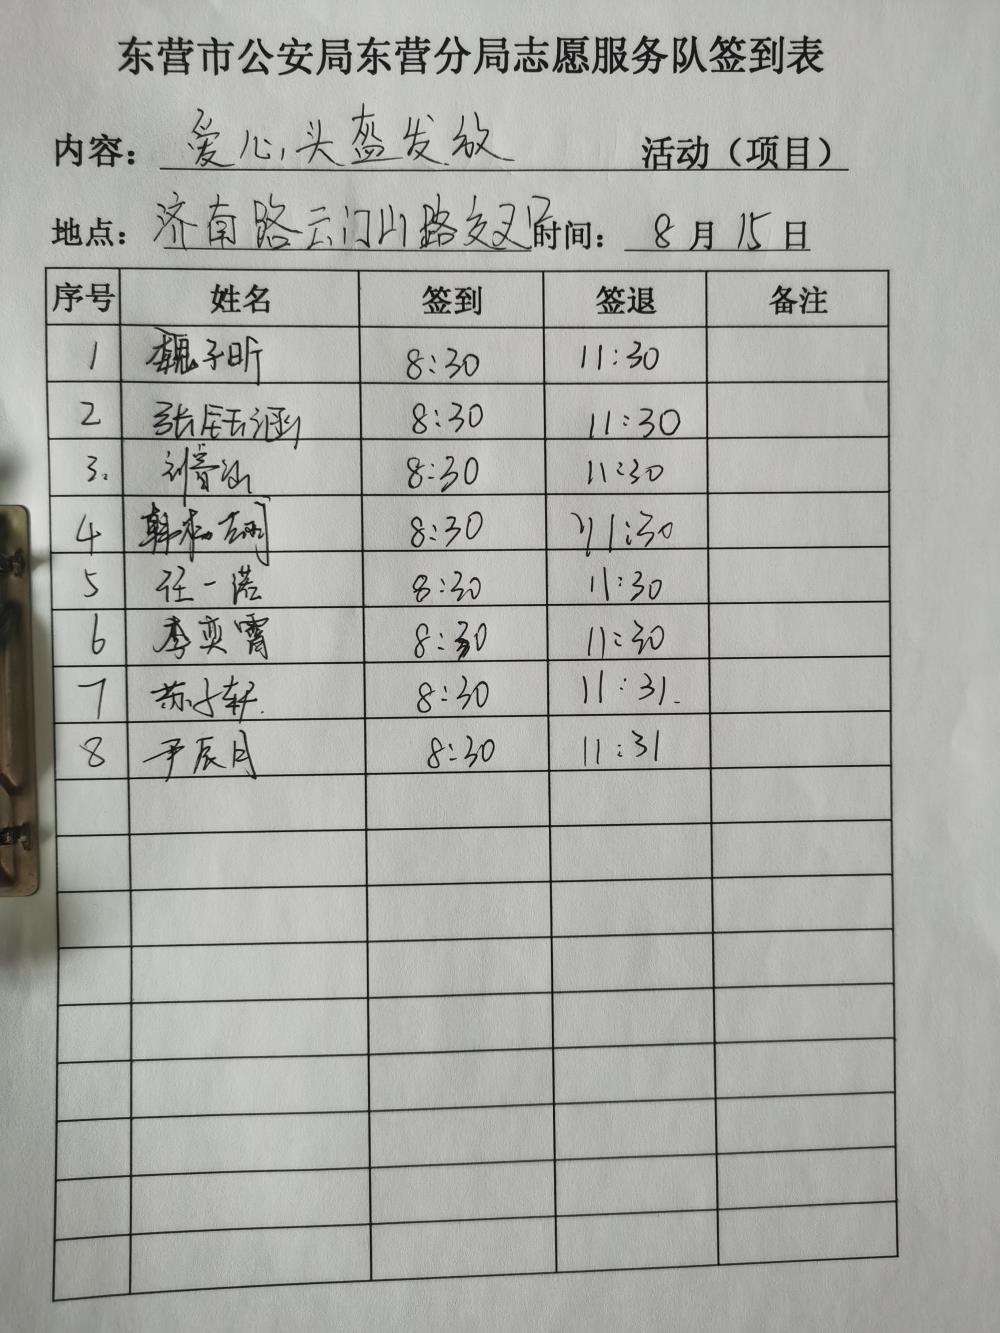 东营市公安局东营分局志愿服务队签到表
内容：爱心头盔发放 活动（项目）
地点：济南路云门山路交叉口 时间：8月15日
序号 姓名 签到 签退 备注
1 魏子昕 8:30 11:30
2 张钰涵 8:30 11:30
3. 刘 8:30 11:30
4 韩 8:30 11:30
5 任一诺 8:30 11:30
6 李奕霄 8:30 11:30
7 苏子轩. 8:30 11:31.
8 尹辰月 8:30 11:31